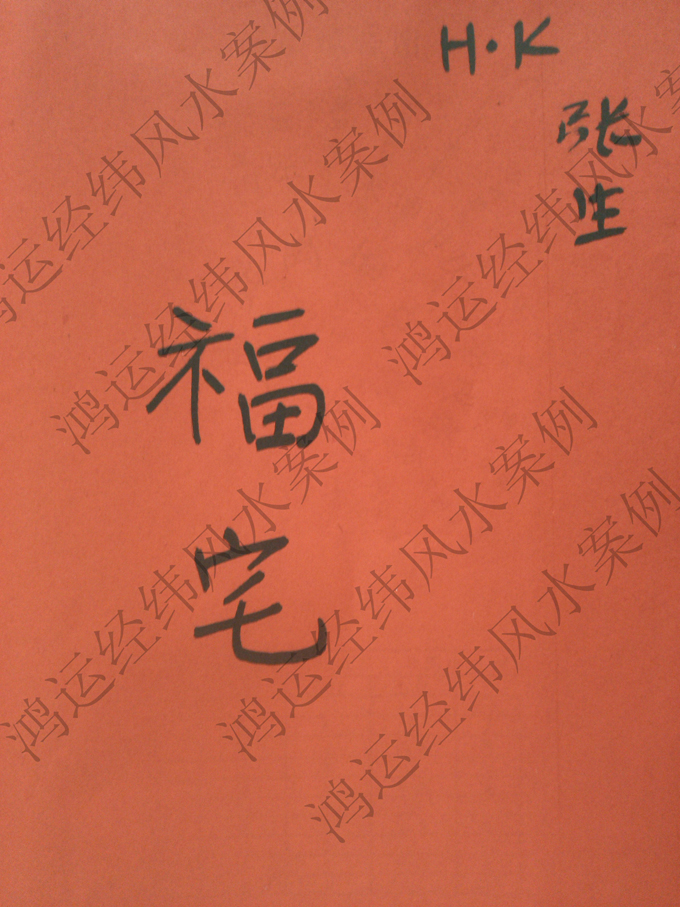 H·K
张
生
福
宅
鸿运经纬风水案例
鸿运经纬风水案例
鸿运经纬风水案例
鸿运经纬风水案例
鸿运经纬风水案例
鸿运经纬风水案例
鸿运经纬风水案例